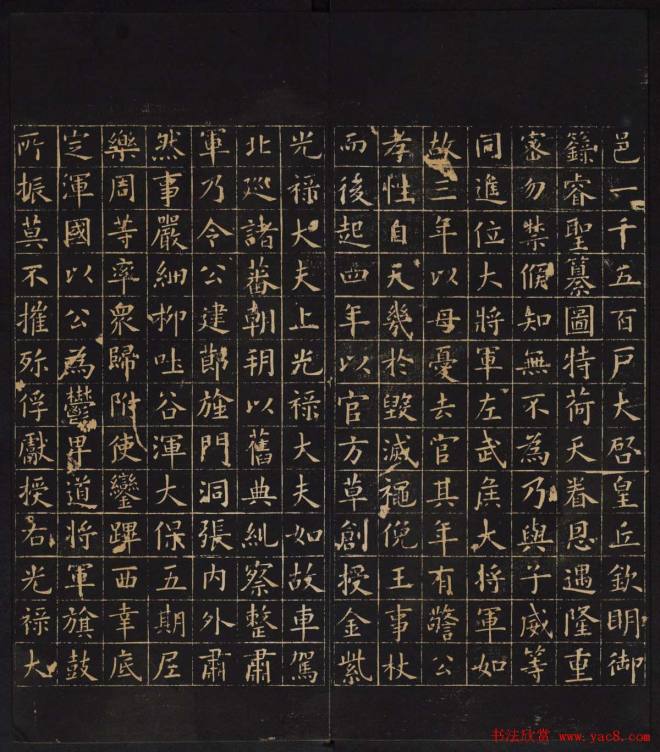 邑一千五百戶大啓皇丘欽明御
籙睿聖纂圖特荷天眷恩遇隆重
密勿禁候知無不為乃與子威等
同進位大將軍左武侯大將軍如
故三年以母憂去官其年有公
孝性自天幾於毀滅俛王事杖
而後起四年以官方草創授金紫
光禄大夫上光禄大夫如故車駕
北巡諸蕃朝朔以舊典糺察整肅
軍乃令公建節旌門洞張內外肅
然事嚴細柳吐谷渾大保五期尼
樂周等率衆歸附使鑾蹕西幸底
定渾國以公為鬱畀道將軍旗鼓
所振莫不摧殄俘獻授右光禄大
书法欣赏 www.yac8.com